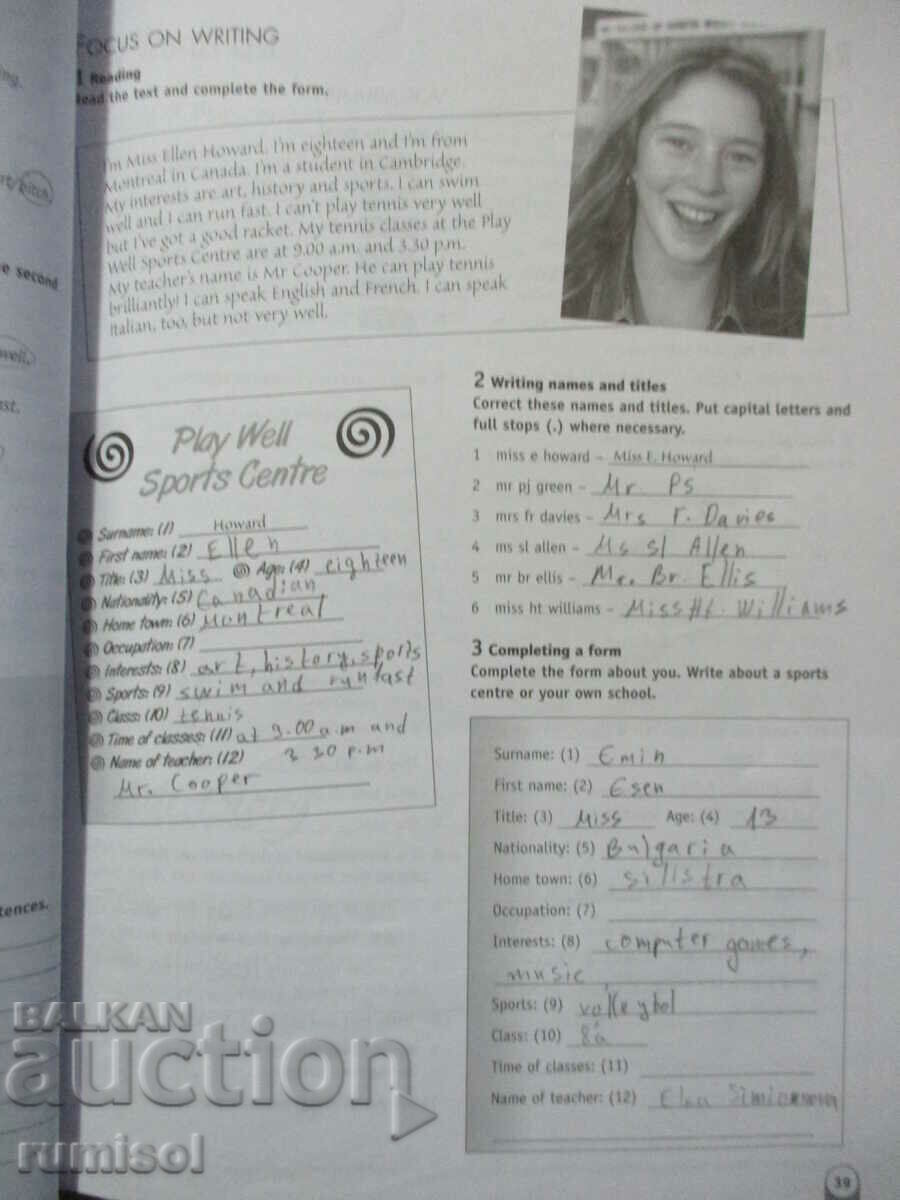 FOCUS ON WRITING
1 Reading
Read the text and complete the form.
I'm Miss Ellen Howard. I'm eighteen and I'm from
Montreal in Canada. I'm a student in Cambridge.
My interests are art, history and sports. I can swim
well and I can run fast. I can't play tennis very well
but I've got a good racket. My tennis classes at the Play
Well Sports Centre are at 9.00 a.m. and 3.30 p.m.
My teacher's name is Mr Cooper. He can play tennis
brilliantly! I can speak English and French. I can speak
Italian, too, but not very well.
e second
well.
st.
tences.
Play Well
Sports Centre
Surname: (1) Howard
First name: (2) Ellen
Title: (3) Miss Age: (4) eighteen
Nationality: (5) Canadian
Home town: (6) Montreal
Occupation: (7)
Interests: (8) art, history, sports
Sports: (9) swim and run fast
Class: (10) tennis
Time of classes: (11) at 9.00 a.m and
Name of teacher: (12) 3 30 p.m
Mr. Cooper
2 Writing names and titles
Correct these names and titles. Put capital letters and
full stops (.) where necessary.
1 miss e howard – Miss E. Howard
2 mr pj green – Mr. PS
3 mrs fr davies – Mrs F. Davies
4 ms sl allen – Ms Sl Allen
5 mr br ellis – Mr. Br. Ellis
6 miss ht williams – Miss Ht. Williams
3 Completing a form
Complete the form about you. Write about a sports
centre or your own school.
Surname: (1) Emin
First name: (2) Esen
Title: (3) Miss Age: (4) 13
Nationality: (5) Bulgaria
Home town: (6) sillstra
Occupation: (7)
Interests: (8) computer games,
music,
Sports: (9) volleybol
Class: (10) 8a
Time of classes: (11)
Name of teacher: (12) Elka
39
BALKAN
auction
rumisol